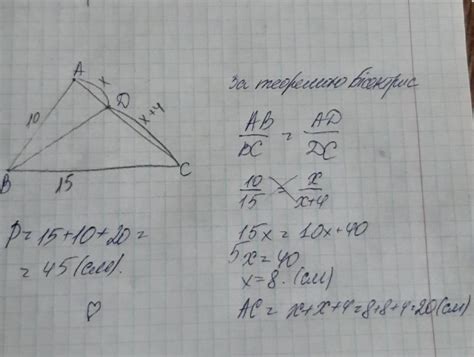 A
x
D
x+4
10
B
15
C
За теоремою бісектрис
AB/BC = AD/DC
10/15 = x/x+4
15x = 10x+40
5x = 40
x = 8. (см)
AC = x+x+4=8+8+4=20(см)
P = 15+10+20 =
= 45 (см).